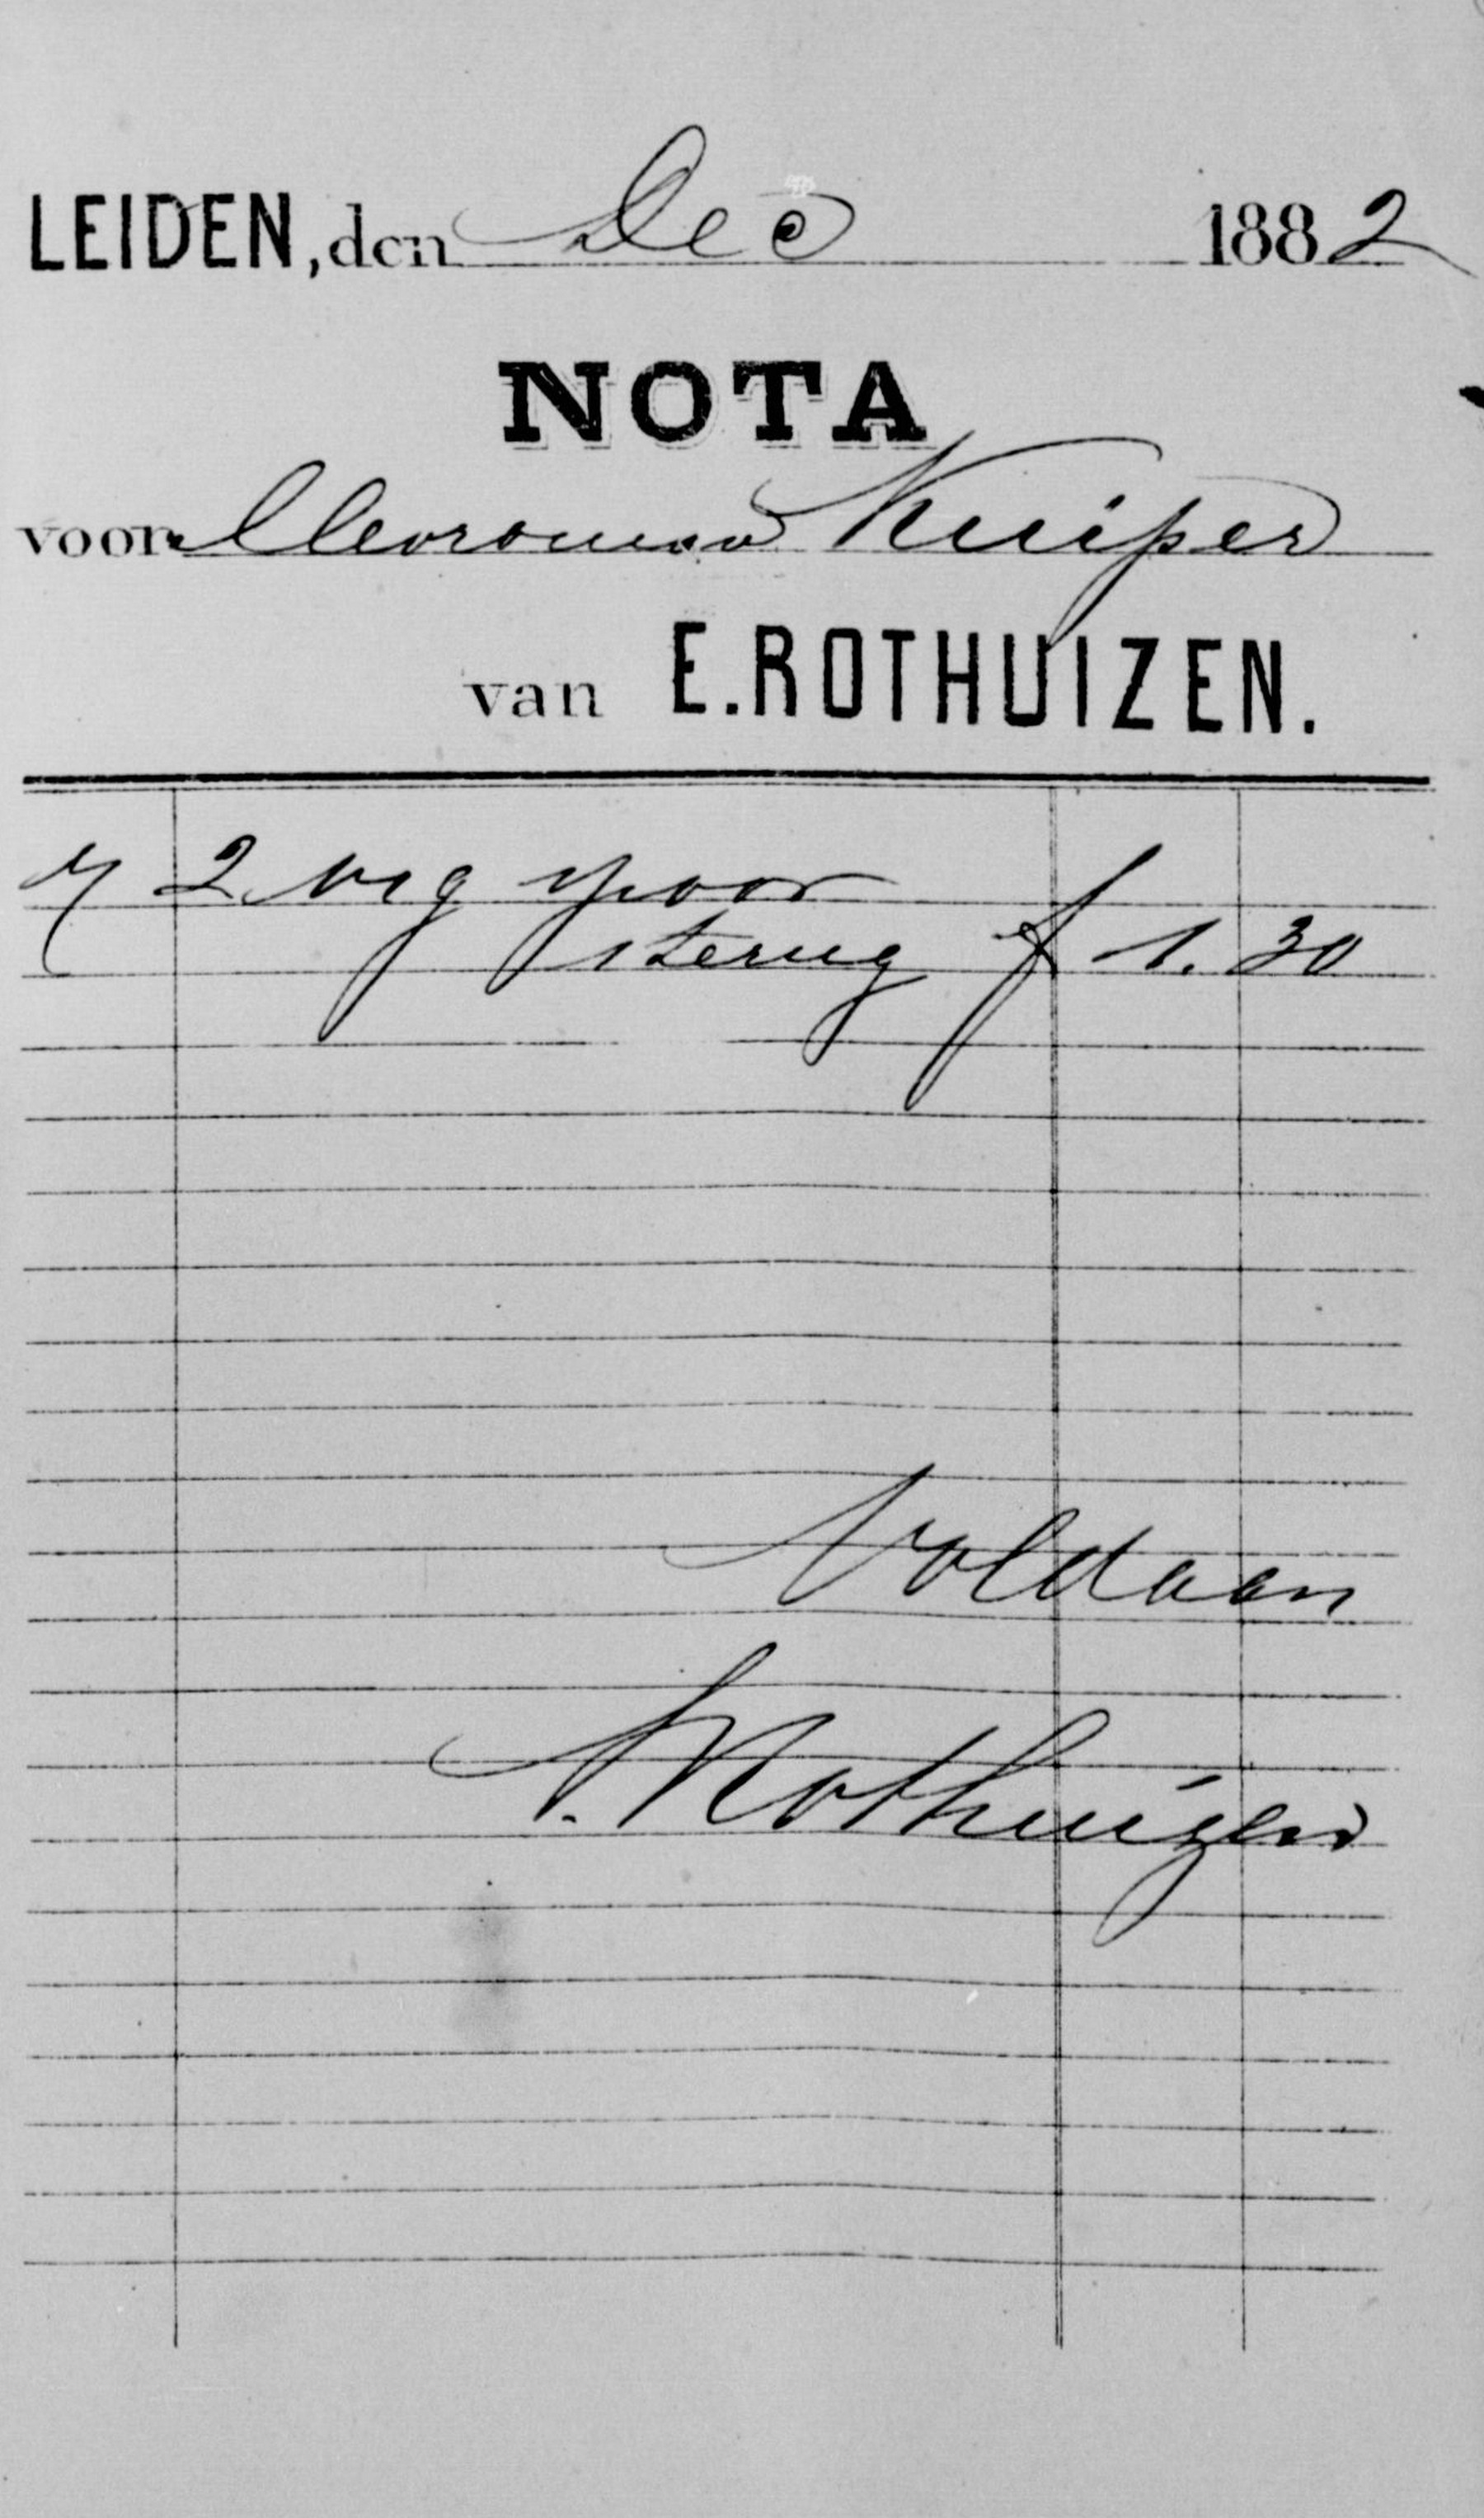 LEIDEN, den Dec 1882
NOTA
voor Mevrouw Kuiper
van E. ROTHUIZEN.
7 2 vig spoor
terug f 1.30
Voldaan
E. Rothuizen